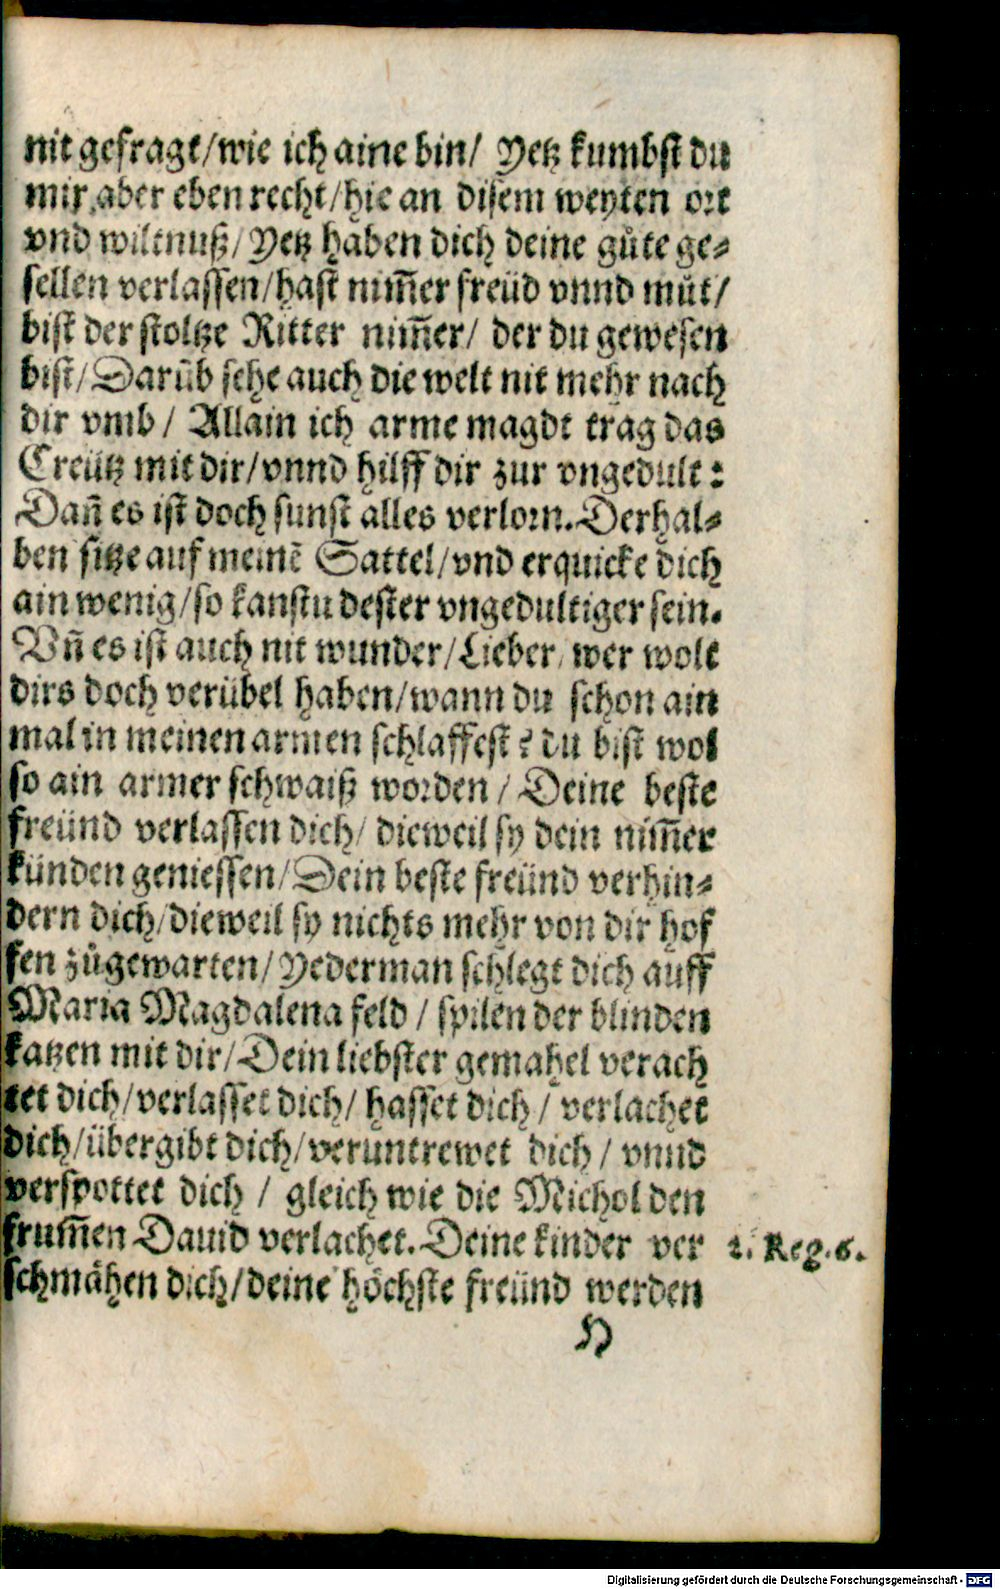 nit gefragt/wie ich aine bin/ Yetz kumbst du
mir aber eben recht/hie an disem weyten ort
vnd wiltnuß/Yetz haben dich deine gůte ge⸗
sellen verlassen/hast nim̃er freüd vnnd můt/
bist der stoltze Ritter nim̃er/ der du gewesen
bist/Darũb sehe auch die welt nit mehr nach
dir vmb/ Allain ich arme magdt trag das
Creütz mit dir/vnnd hilff dir zur vngedult:
Dañ es ist doch sunst alles verlorn. Derhal⸗
ben sitze auf meinẽ Sattel/vnd erquicke dich
ain wenig/so kanstu dester vngedultiger sein.
Vñ es ist auch nit wunder/Lieber/wer wolt
dirs doch verübel haben/wann du schon ain
mal in meinen armen schlaffest? du bist wol
so ain armer schwaiß worden/Deine beste
freünd verlassen dich/ dieweil sy dein nim̃er
künden geniessen/Dein beste freünd verhin⸗
dern dich/dieweil sy nichts mehr von dir hof
fen zůgewarten/Yederman schlegt dich auff
Maria Magdalena feld/ spilen der blinden
katzen mit dir/Dein liebster gemahel verach
tet dich/verlasset dich/ hasset dich/ verlachet
dich/übergibt dich/veruntrewet dich/ vnnd
verspottet dich/ gleich wie die Michol den
frum̃en Dauid verlachet. Deine kinder ver 2. Reg. 6.
schmähen dich/deine höchste freünd werden
H
Digitalisierung gefördert durch die Deutsche Forschungsgemeinschaft - DFG